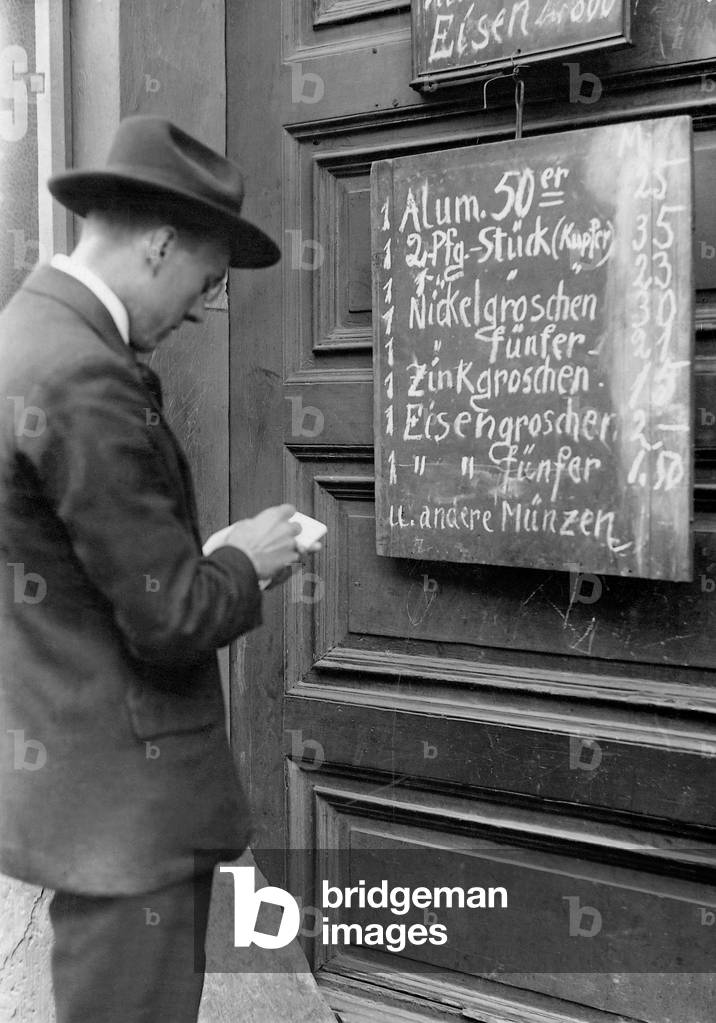 Eisen
M
1 Alum. 50er 25
1 2-Pfg-Stück (Kupfer) 35
1 1 " " "
1 Nickelgroschen
1 " fünfer -
1 Zinkgroschen.
1 Eisengroschen 2.
1 " " fünfer 1.50
u. andere Münzen
bridgeman
images